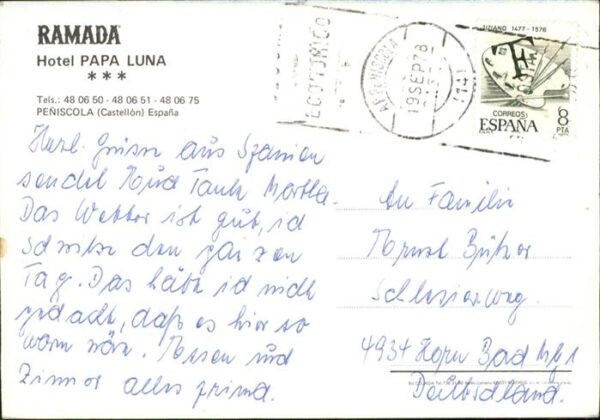 RAMADA
Hotel PAPA LUNA
★★★
Tels.: 48 06 50 - 48 06 51 - 48 06 75
PEÑISCOLA (Castellón) España
Herzl. Grüsse aus Spanien
sendet Tante Martha.
Das Wetter ist gut, ich
schwitze den ganzen
Tag. Das hätte ich nicht
gedacht, daß es hier so
warm wäre. Essen und
Zimmer alles prima.
TIZIANO 1477-1576
CORREOS
ESPAÑA
8
PTA
19 SEP 78
An Familie
Ernst
Schlesierweg.
4934 Horn Bad
Deutschland.